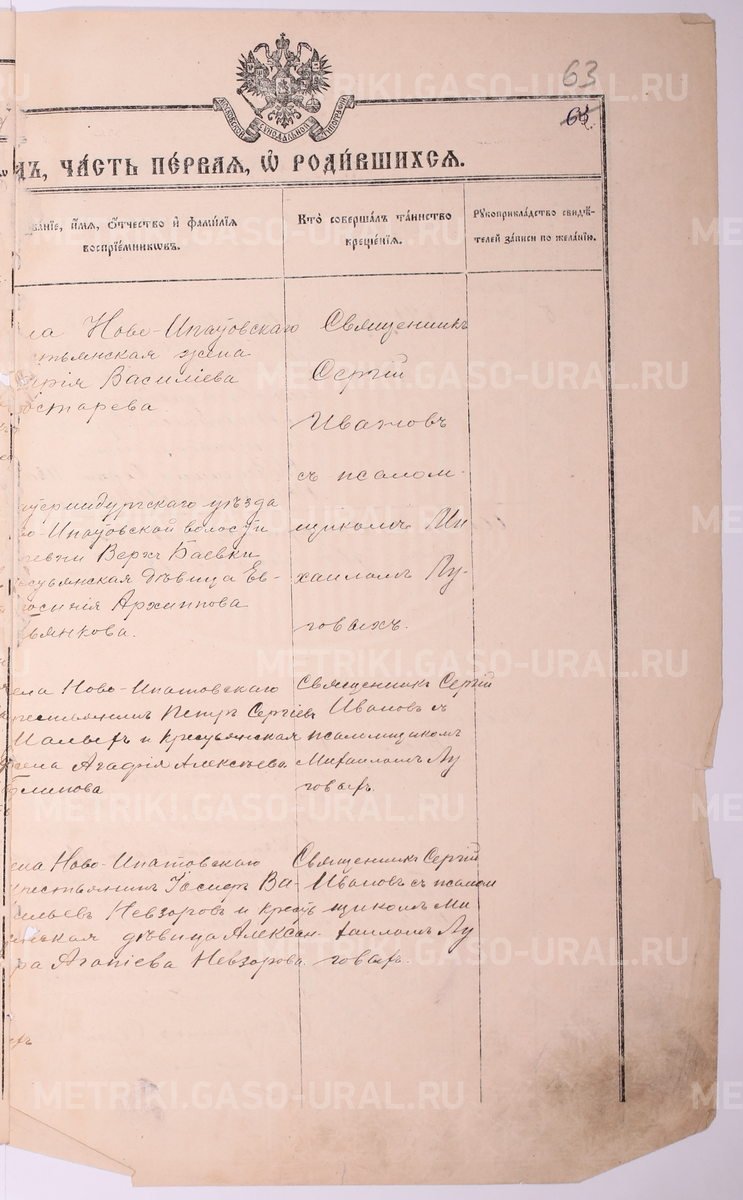 63
МОСКОВСКОЙ СѴНОДАЛЬНОЙ ТИПОГРАФІИ
дъ, ча́сть пе́рвая, ѡ҆ роди́вшихсѧ.
зва́ніе, и҆́мѧ, ѻ҆́тчество и҆ фами́лїѧ
воспрїе́мникѡвъ.
Кто̀ соверша́лъ та́инство
креще́нїѧ.
Рꙋкоприкла́дство свидѣ́-
телей за́писи по жела́нїю.
ла Ново-Ипатовскаго
стьянская жена
рія Василіева
старева.
Священникъ
Сергій
Ивановъ
съ псалом-
щикомъ Ми-
хаиломъ Лу-
говыхъ.
уѣзда
во-Ипатовской волости
ревни Верхъ Баевки
крестьянская дѣвица Ев-
росинія Архиппова
ьянкова.
села Ново-Ипатовскаго
крестьянинъ Петръ Сергіевъ
и крестьянская
жена Агафія Алексѣева
Священникъ Сергій
Ивановъ съ
псаломщикомъ
Михаиломъ Лу
говыхъ.
села Ново-Ипатовскаго
крестьянинъ Іосифъ Ва-
сильевъ Невзоровъ и кресть
янская дѣвица Алексан-
ра Агапіева Невзорова.
Священникъ Сергій
Ивановъ съ псалом
щикомъ Ми
хаиломъ Лу
говыхъ.
METRIKI.GASO-URAL.RU